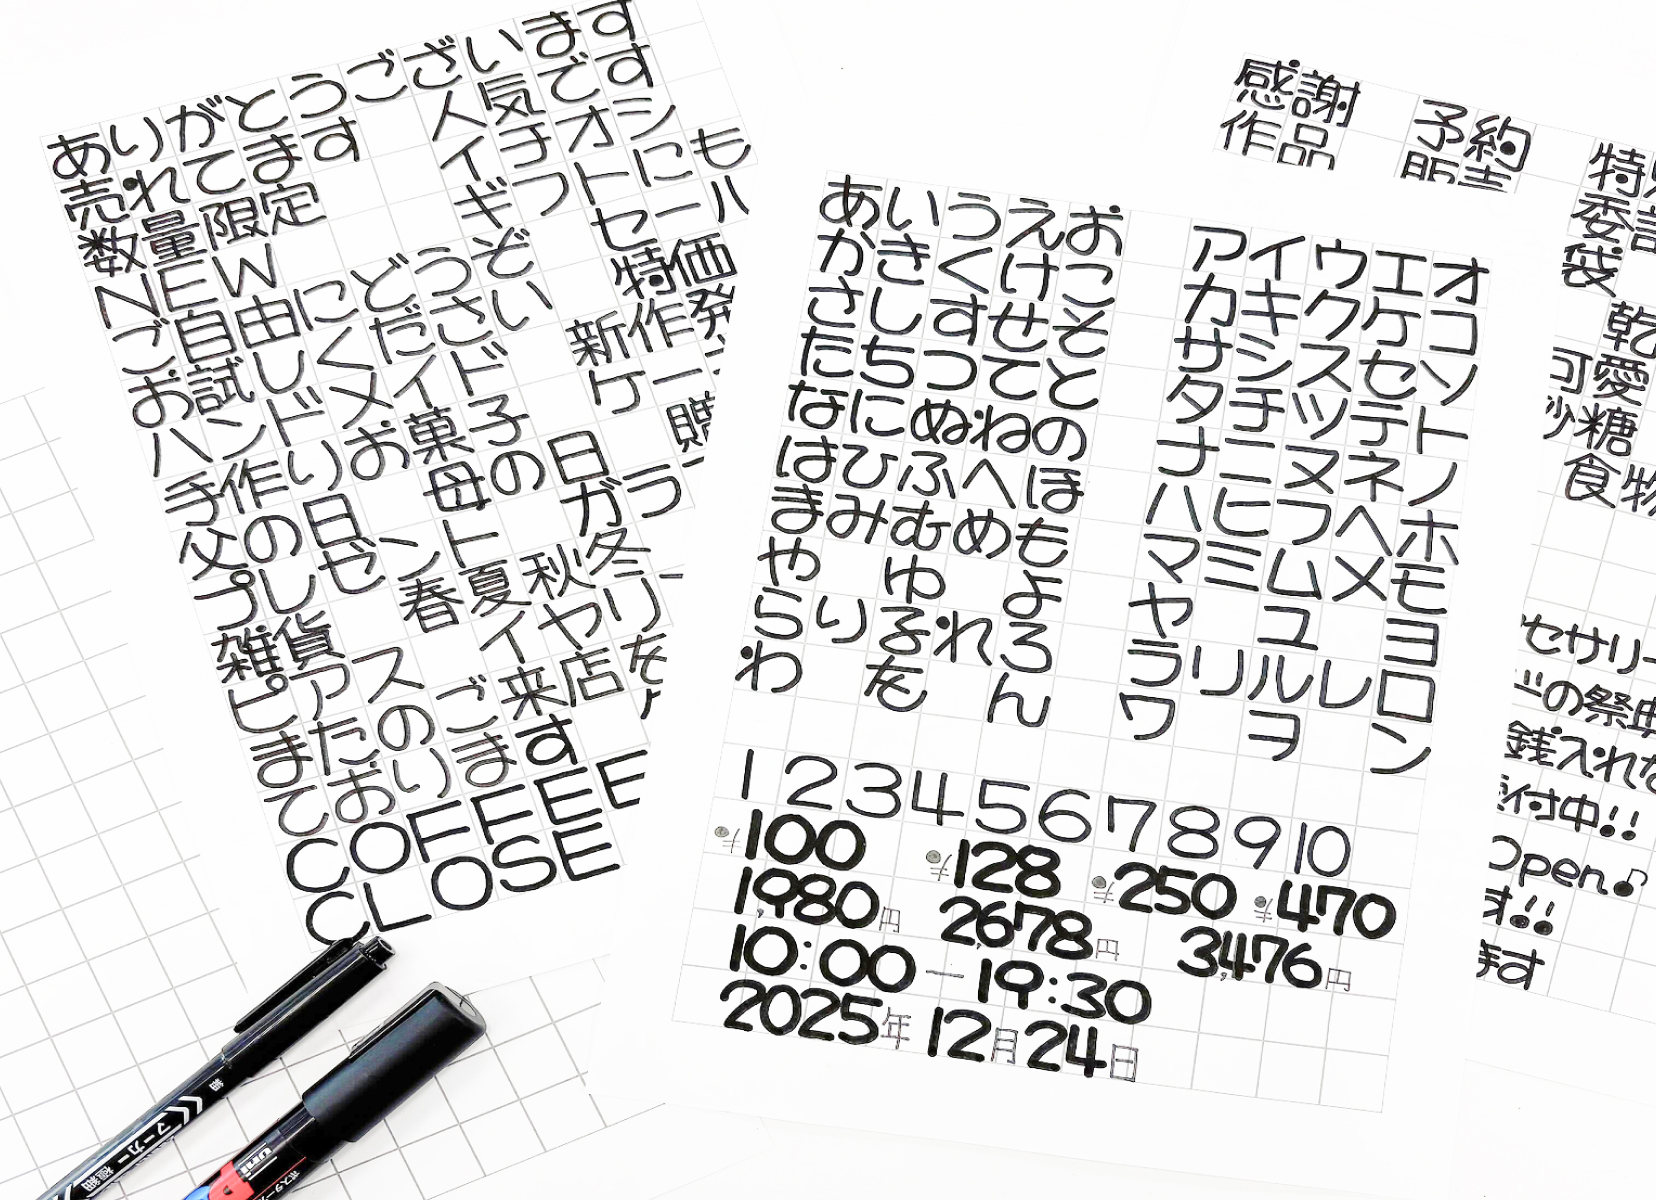 ありがとうございます
売れてます 人気です
数量限定 イチオシ
NEW ギフトにも
ご自由にどうぞ セール
お試しください 特価
ハンドメイド 新作発
手作りお菓子 ケー
父の日 母の日 購
プレゼント ガラ
雑貨 春夏秋冬
ピアス イヤリ
まだのご来店を
ております
COFFEE
CLOSE
あいうえお
かきくけこ
さしすせそ
たちつてと
なにぬねの
はひふへほ
まみむめも
や ゆ よ
らりるれろ
わ を ん
アイウエオ
カキクケコ
サシスセソ
タチツテト
ナニヌネノ
ハヒフヘホ
マミムメモ
ヤ ユ ヨ
ラリルレロ
ワ ヲ ン
1 2 3 4 5 6 7 8 9 10
¥100 ¥128 ¥250 ¥470
1,980円 2,678円 3,476円
10:00―19:30
2025年12月24日
感謝 予約 特
作品 販売 委託
袋
乾
可愛
砂糖
食物
セサリー
の祭典
銭入れな
付中!!
Open♪
す!!
ます
マーカー 極細
細
uni
ポスター